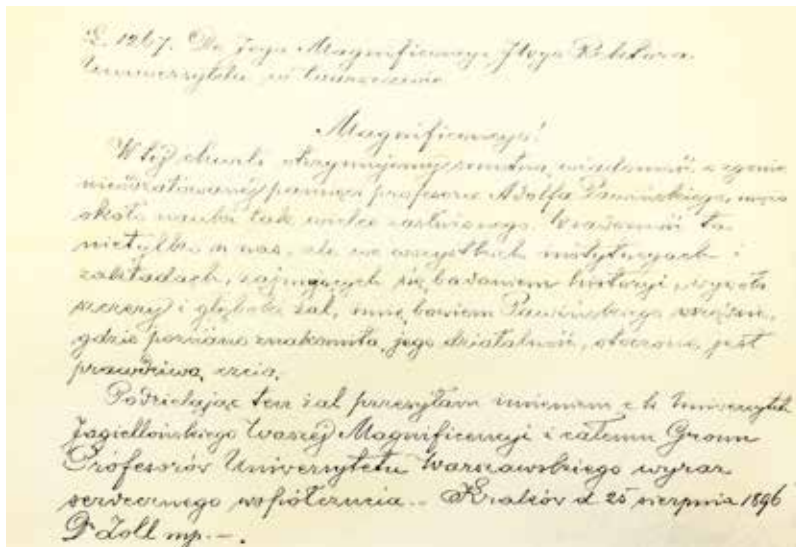 L. 1267. Do Jego Magnificencyi, Jego Rektora
Uniwersytetu w Warszawie
Magnificencyo!
W tej chwili otrzymujemy smutną wiadomość o zgonie
nieodżałowanej pamięci profesora Adolfa Pawińskiego, męża
około nauki tak wielce zasłużonego. Wiadomość ta
nietylko u nas, ale we wszystkich instytucyach i
zakładach, zajmujących się badaniem historyi, wywoła
szczery i głęboki żal, imię bowiem Pawińskiego wszędzie,
gdzie poznano znakomitą jego działalność, otoczone jest
prawdziwą czcią.
Podzielając ten żal przesyłam imieniem c k Uniwersytetu
Jagiellońskiego Waszej Magnificencyi i całemu Gronu
Profesorów Uniwersytetu Warszawskiego wyraz
serdecznego współczucia.. Kraków d 25 sierpnia 1896
Dr Zoll mp. —.